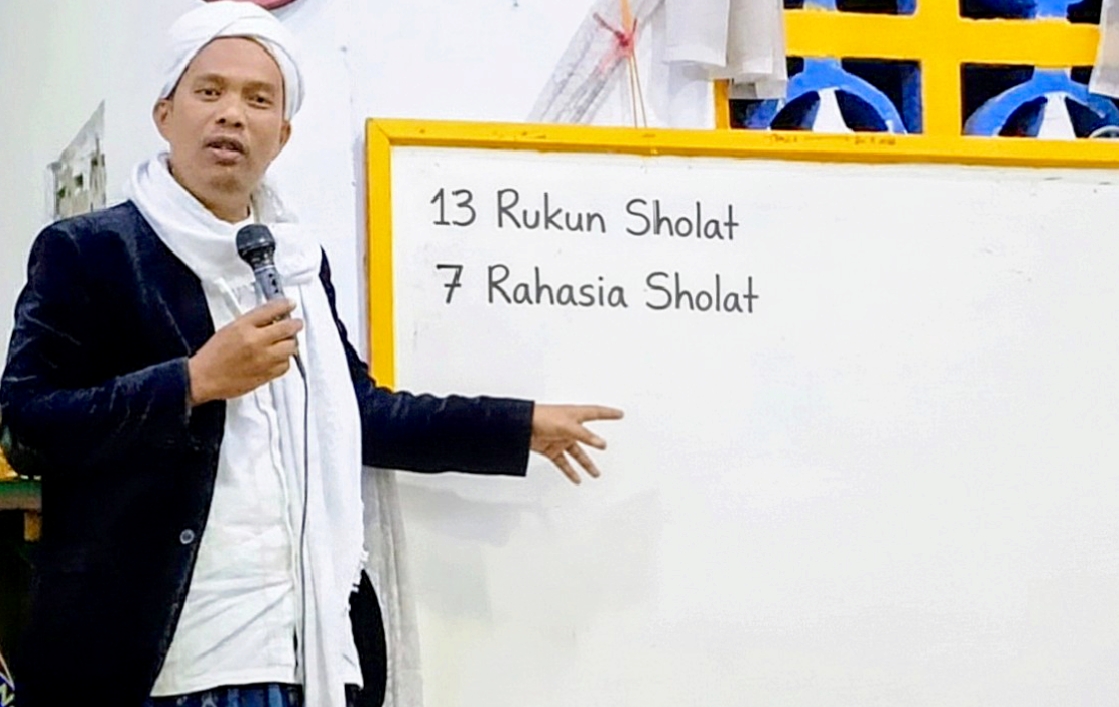 13 Rukun Sholat
7 Rahasia Sholat